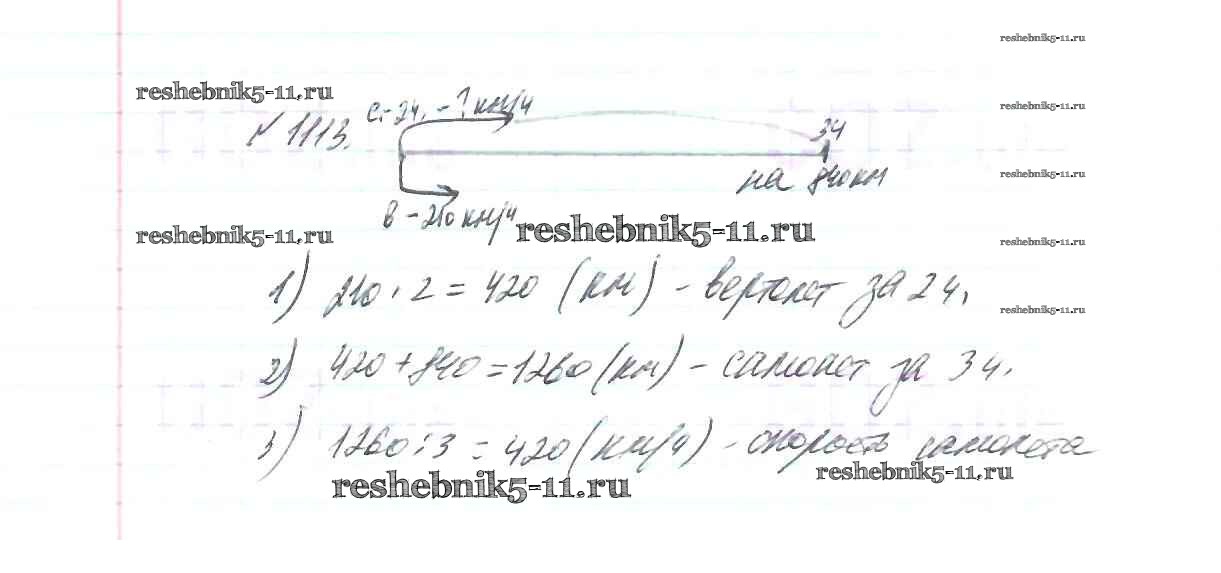 reshebnik5-11.ru
reshebnik5-11.ru
С.-2ч. - ? км/ч
reshebnik5-11.ru
№ 1113.
3ч
на 840 км
reshebnik5-11.ru
В - 210 км/ч
reshebnik5-11.ru
reshebnik5-11.ru
reshebnik5-11.ru
1) 210 · 2 = 420 (км) - вертолет за 2 ч.
reshebnik5-11.ru
2) 420 + 840 = 1260 (км) - самолет за 3 ч.
3) 1260 : 3 = 420 (км/ч) - скорость самолета
reshebnik5-11.ru
reshebnik5-11.ru